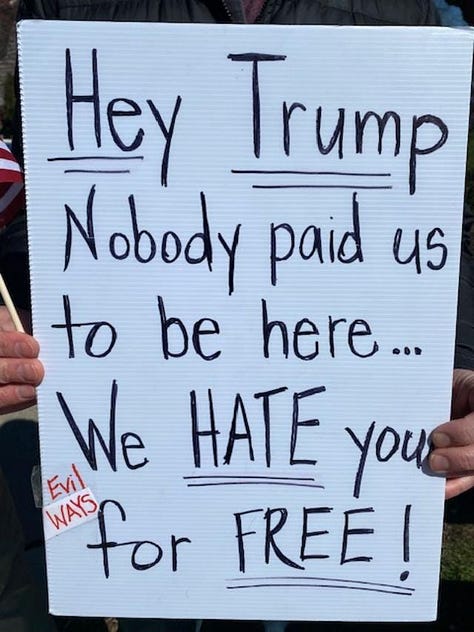 Hey Trump
Nobody paid us
to be here...
We HATE you
Evil
WAYS
for FREE!